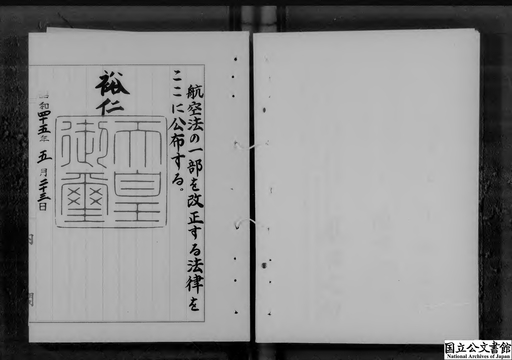 航空法の一部を改正する法律を
ここに公布する。
裕仁
天皇御璽
昭和四十五年五月二十三日
内閣
国立公文書館
National Archives of Japan